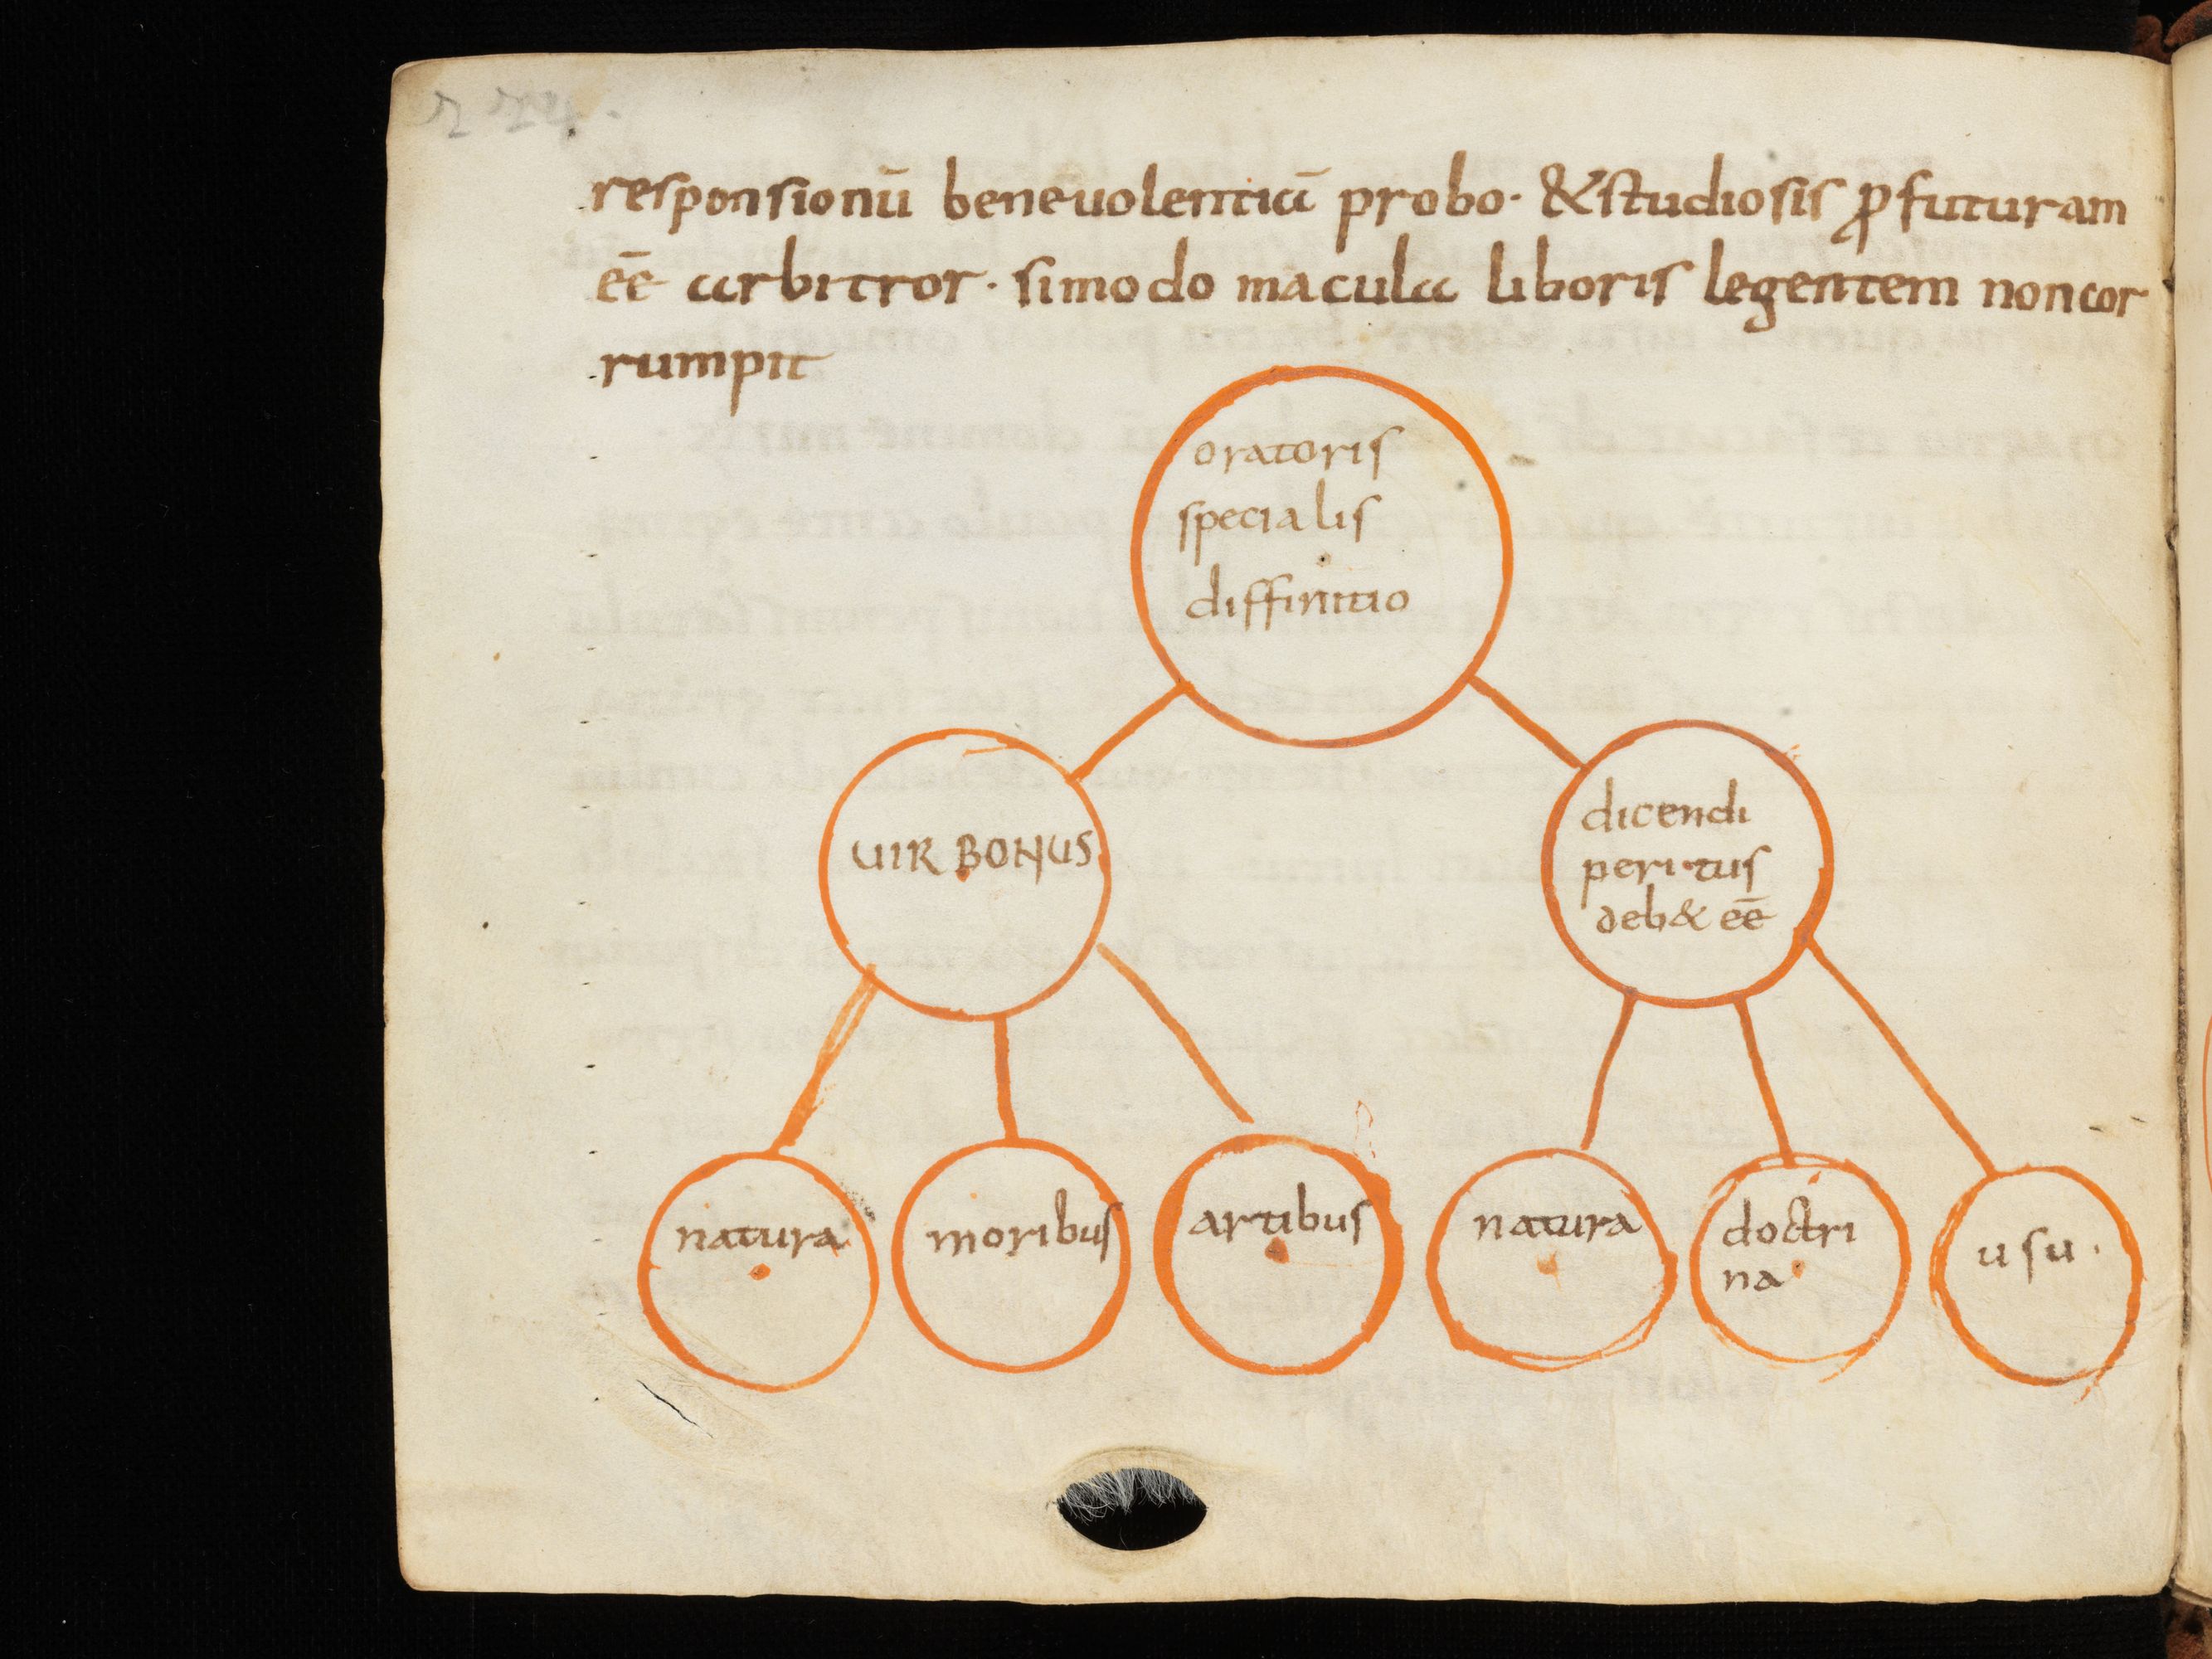 responsionū beneuolentiā probo· & studiosis ꝓfuturam
eē̄ arbitror· si modo macula liboris legentem non cor
rumpit
oratoris
specialis
diffinitio
UIR BONUS
dicendi
peritus
deb& eē
natura
moribus
artibus
natura
doctri
na
usu·